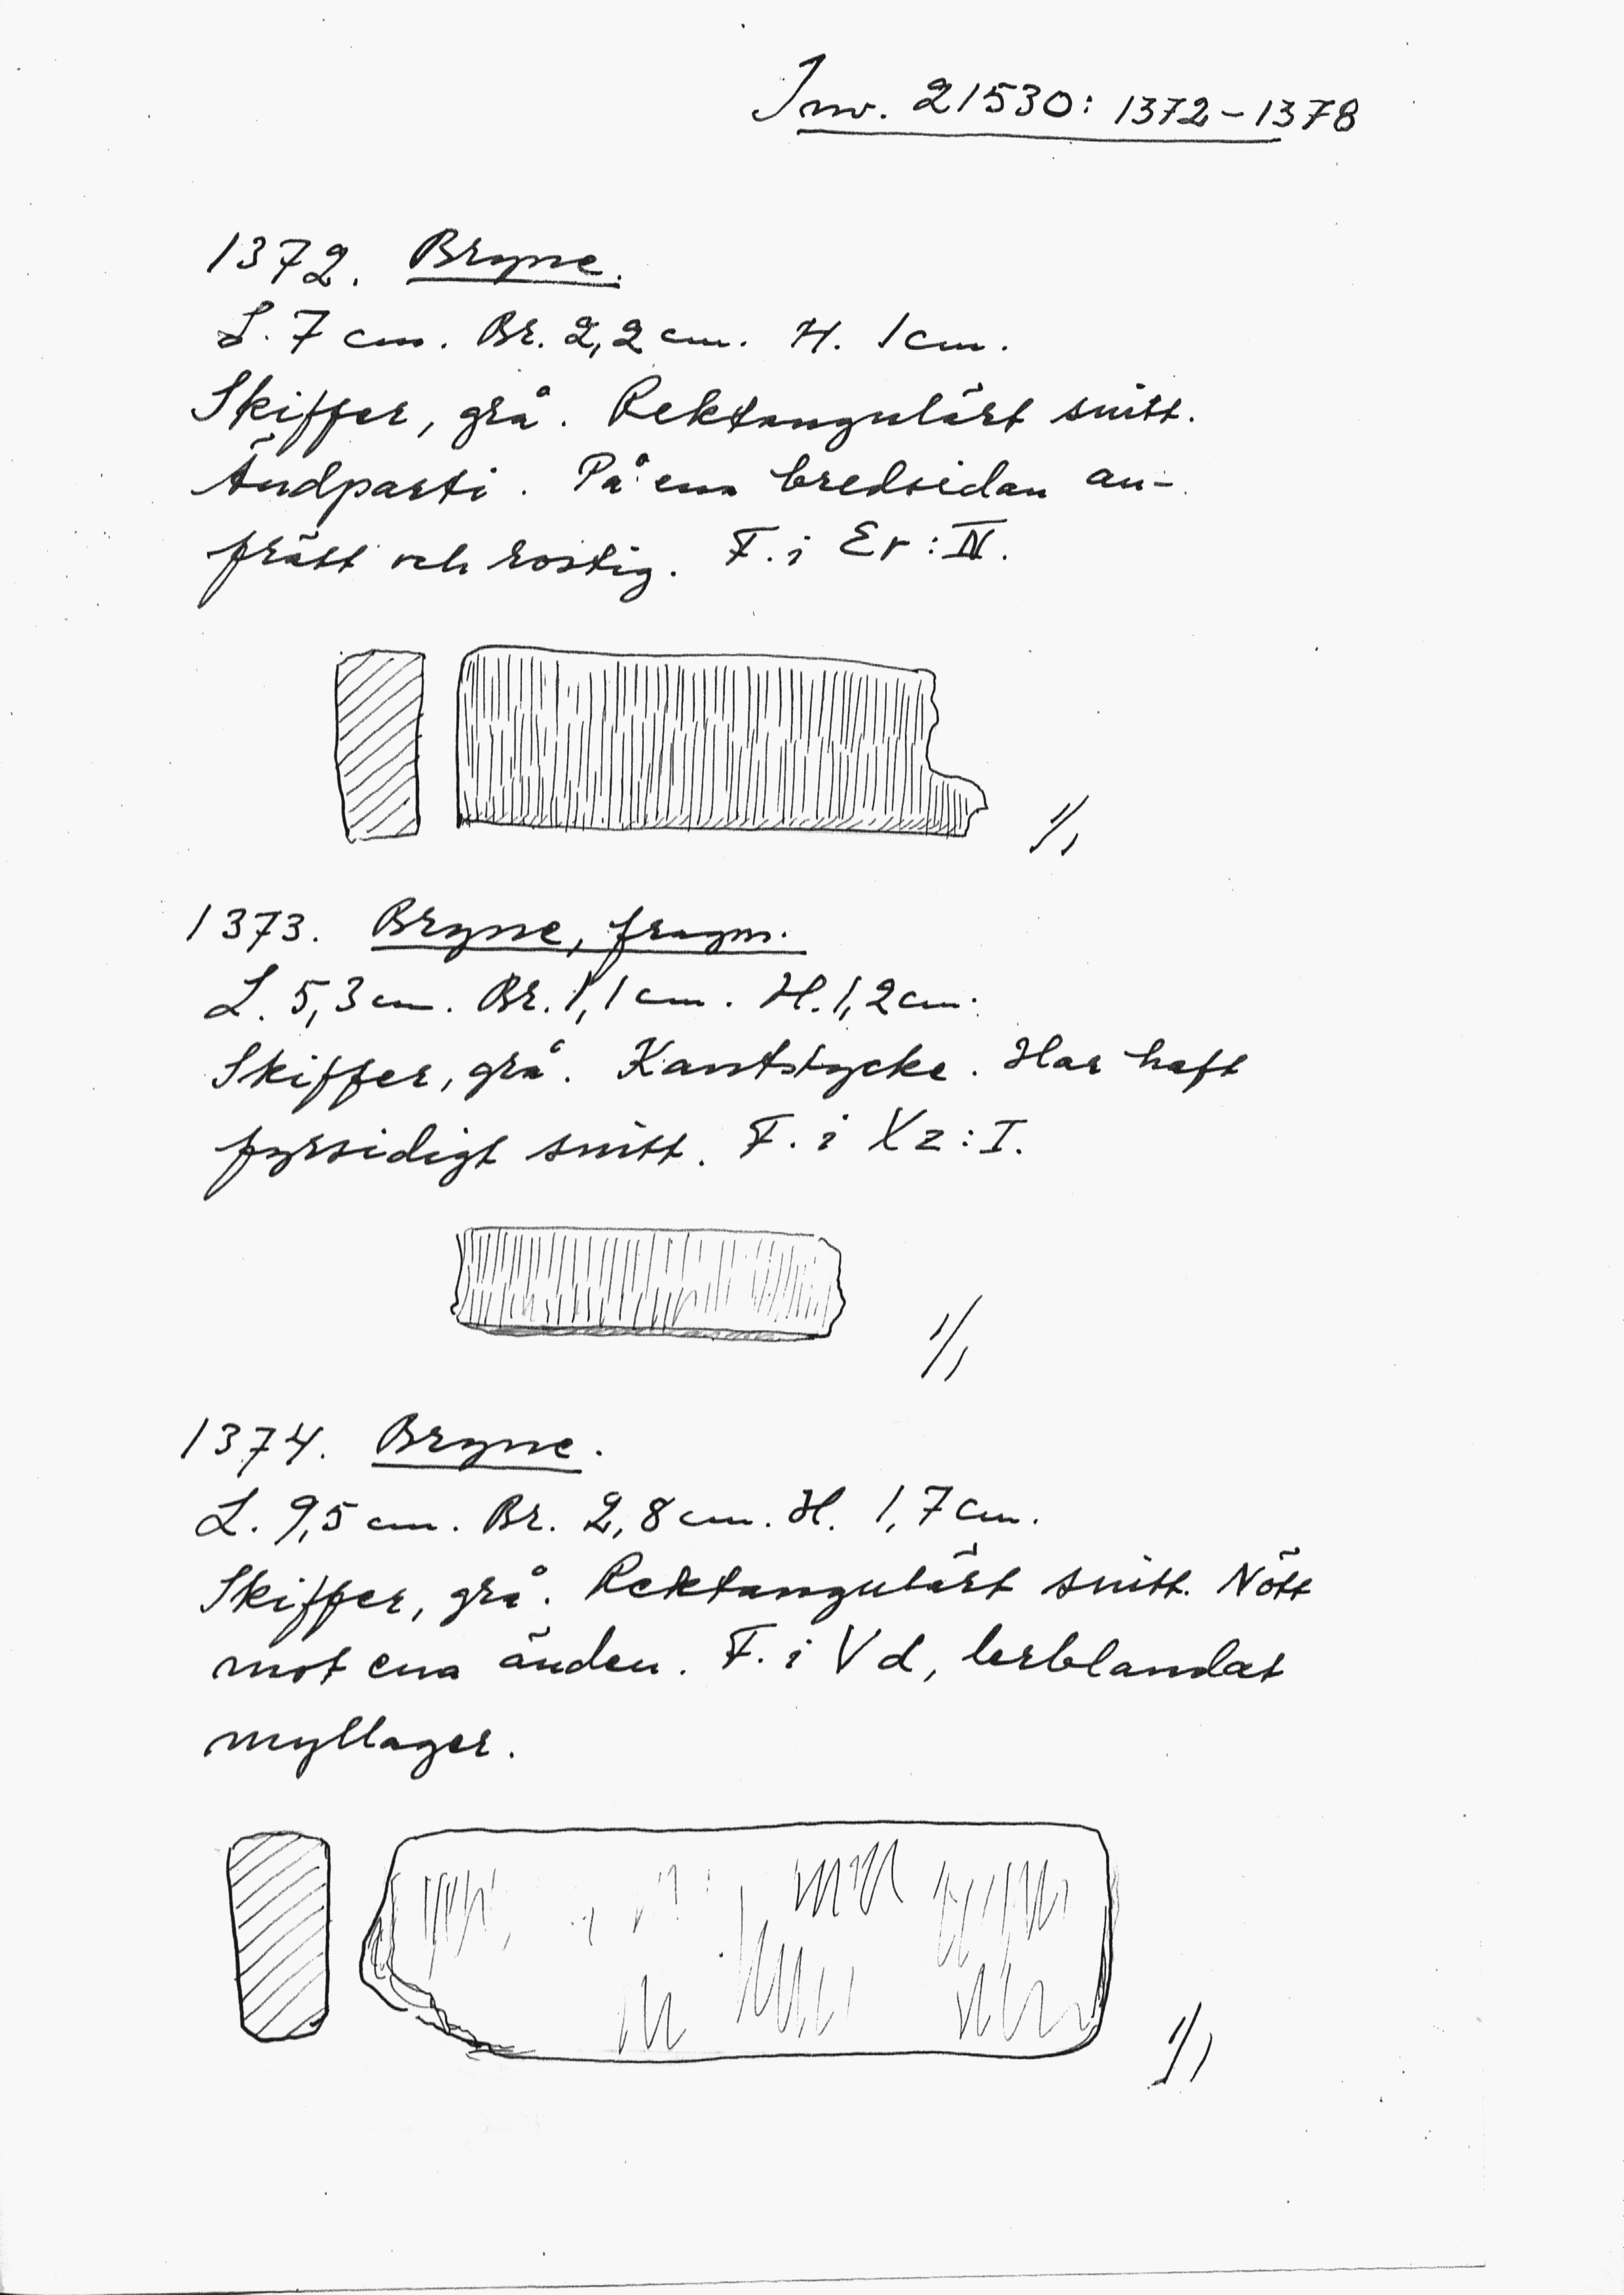 Inv. 21530: 1372-1378
1372. Bryne.
L. 7 cm. Br. 2,2 cm. H. 1 cm.
Skiffer, grå. Rektangulärt snitt.
Ändparti. På ena bredsidan an-
frätt och rostig. F. i Er: IV.
1/1
1373. Bryne, fragm.
L. 5,3 cm. Br. 1,1 cm. H. 1,2 cm.
Skiffer, grå. Kantstycke. Har haft
fyrsidigt snitt. F. i Xz: I.
1/1
1374. Bryne.
L. 9,5 cm. Br. 2,8 cm. H. 1,7 cm.
Skiffer, grå. Rektangulärt snitt. Nött
mot ena änden. F. i Vd, lerblandat
myllager.
1/1